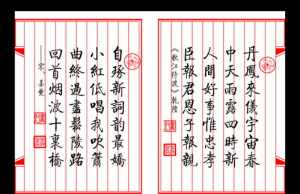 丹鳳來儀宇宙春
中天雨露四時新
人間好事惟忠孝
臣報君恩子報親
自琢新詞韵最嬌
小紅低唱我吹簫
曲終過盡鬆陵路
回首烟波十裏橋